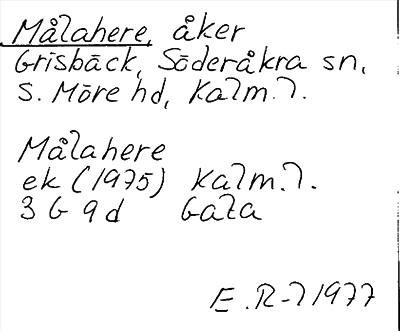 Målahere, åker
Grisbäck, Söderåkra sn,
S. Möre hd, Kalm.l.
Målahere
ek (1975) Kalm.l.
3 G 9 d Gata
E.R-l 1977